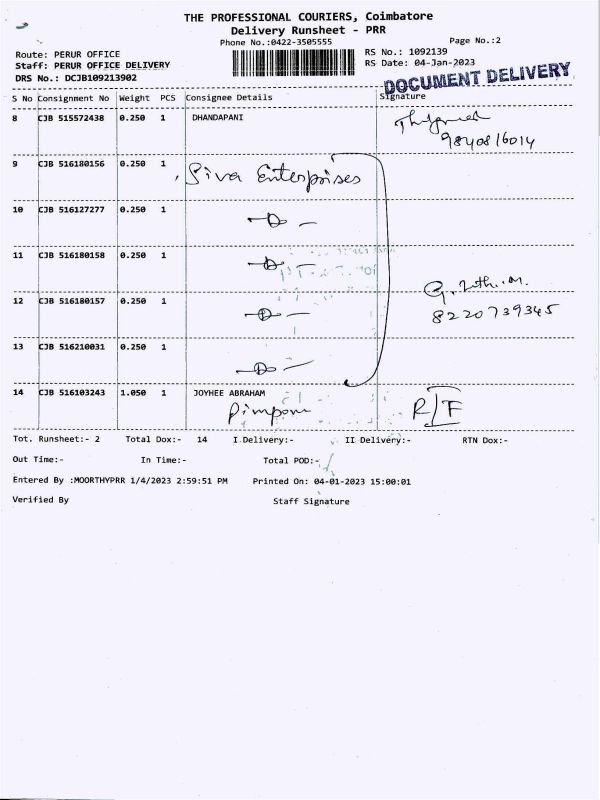 THE PROFESSIONAL COURIERS, Coimbatore
Delivery Runsheet - PRR
Phone No.:0422-3505555
Page No.:2
Route: PERUR OFFICE
RS No.: 1092139
Staff: PERUR OFFICE DELIVERY
RS Date: 04-Jan-2023
DRS No.: DCJB109213902
DOCUMENT DELIVERY
S No Consignment No Weight PCS Consignee Details Signature
8 CJB 515572438 0.250 1 DHANDAPANI
9840816014
9 CJB 516180156 0.250 1 Siva Enterprises
10 CJB 516127277 0.250 1 -D-
11 CJB 516180158 0.250 1 -D-
12 CJB 516180157 0.250 1 -D-
8220739345
13 CJB 516210031 0.250 1 -D-
14 CJB 516103243 1.050 1 JOYHEE ABRAHAM
R/F
Tot. Runsheet:- 2 Total Dox:- 14 I Delivery:- II Delivery:- RTN Dox:-
Out Time:- In Time:- Total POD:-
Entered By :MOORTHYPRR 1/4/2023 2:59:51 PM Printed On: 04-01-2023 15:00:01
Verified By Staff Signature